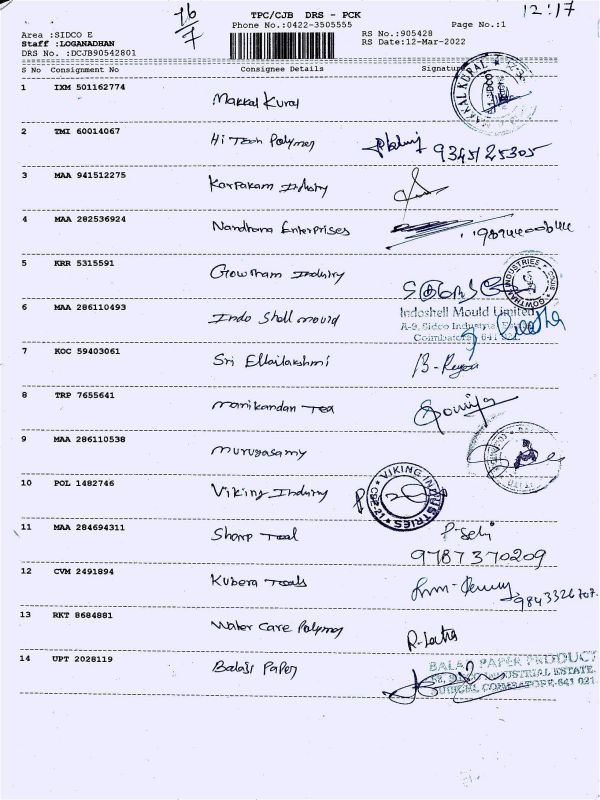 12:17
16/7
TPC/CJB DRS - PCK
Phone No.:0422-3505555
Page No.:1
Area :SIDCO E
Staff :LOGANADHAN
DRS No. :DCJB90542801
RS No.:905428
RS Date:12-Mar-2022
S No Consignment No Consignee Details Signature
1 IXM 501162774 Makkal Kural
2 TMI 60014067 Hi Tech Polymer 9345125305
3 MAA 941512275 Karpakam Industry
4 MAA 282536924 Nandhana Enterprises
5 KRR 5315591 Gowtham Industry
GOWTHAM INDUSTRIES
6 MAA 286110493 Indo Shell mould
Indoshell Mould Limited
A-9, Sidco Industrial
Coimbatore 641 021
7 KOC 59403061 Sri Ellailakshmi
8 TRP 7655641 manikandan Tex
9 MAA 286110538 murugasamy
10 POL 1482746 Viking Industry
VIKING INDUSTRIES
CBE-21
11 MAA 284694311 Sharp Tool P-Selvi
9787370209
12 CVM 2491894 Kubera Tools 9843326707
13 RKT 8684881 Water Care Polymer R-Latha
14 UPT 2028119 Balaji Paper
BALAJI PAPER PRODUCT
INDUSTRIAL ESTATE
COIMBATORE-641 021